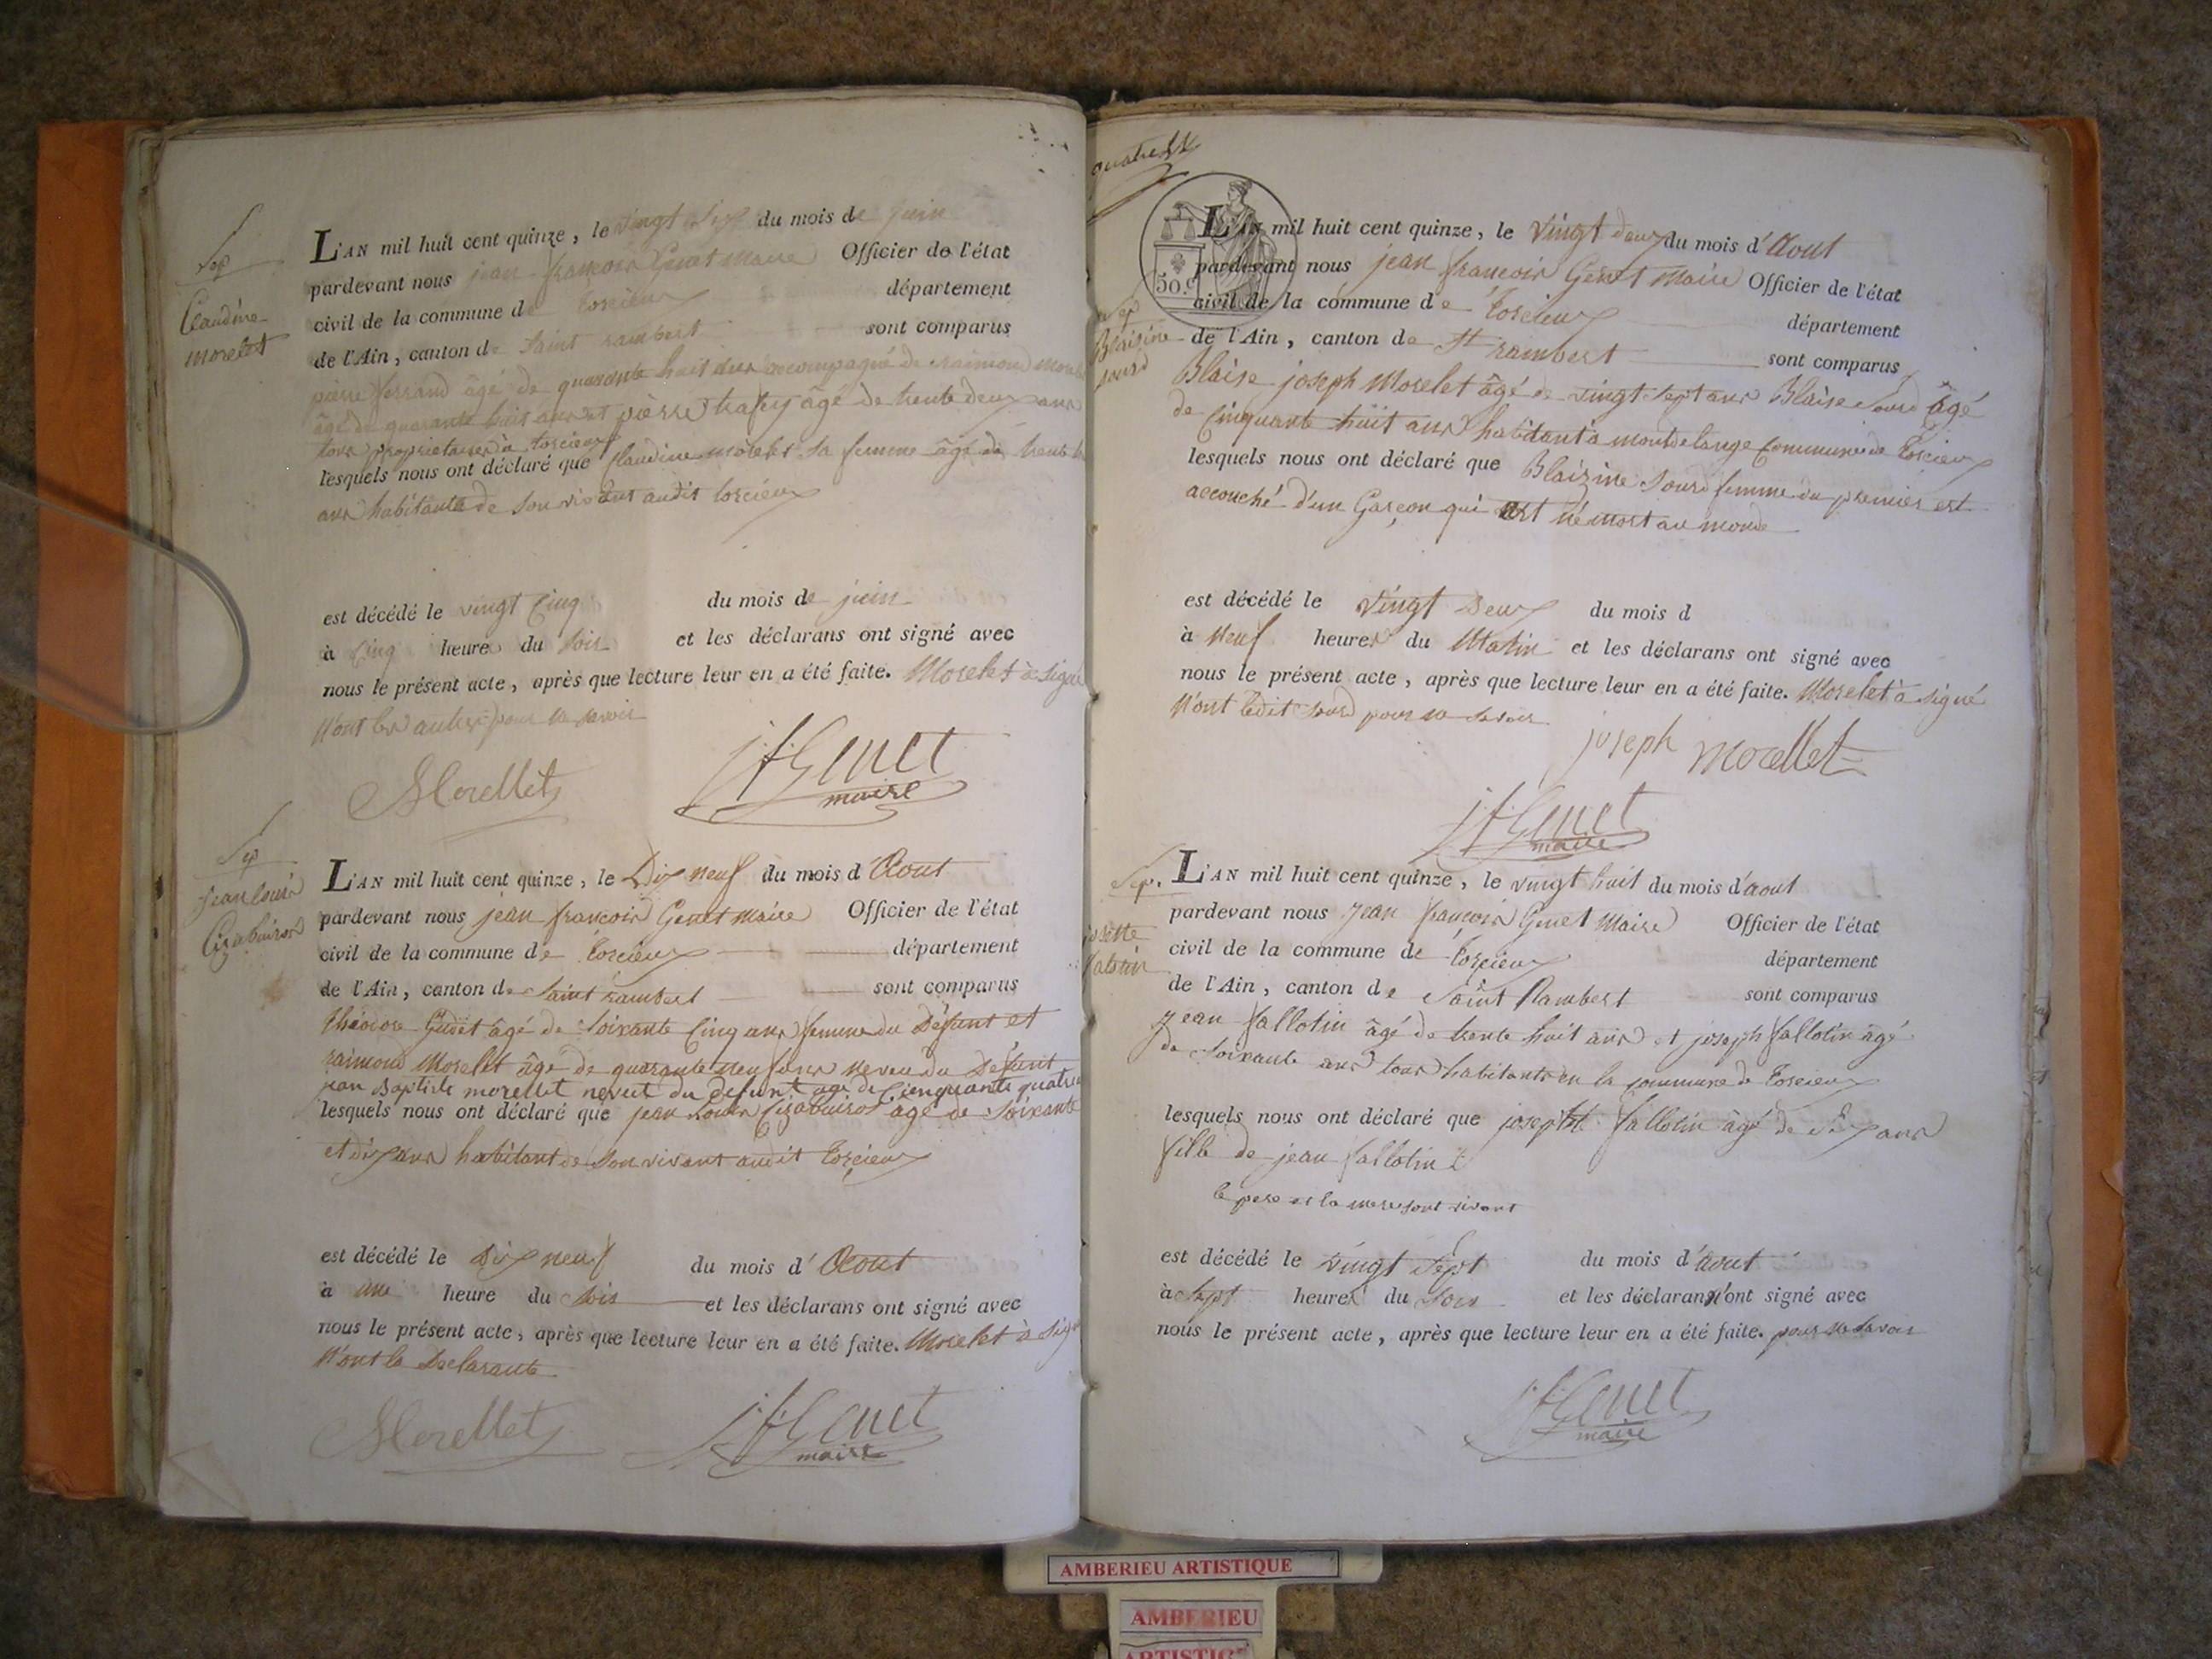 Sep
Claudine
morelet
L'AN mil huit cent quinze, le vingt six du mois de juin
pardevant nous jean françois Genet Maire Officier de l'état
civil de la commune de torcieux département
de l'Ain, canton de Saint rambert sont comparus
pierre ferrand âgé de quarante huit ans accompagné de raimond
âgé de quarante huit ans et pierre âgé de trente deux ans
tous proprietaires à torcieux
lesquels nous ont déclaré que Claudine morelet sa femme âgé de trente
ans habitante de son vivant audit torcieux
est décédé le vingt Cinq du mois de juin
à Cinq heures du soir et les déclarans ont signé avec
nous le présent acte, après que lecture leur en a été faite. Morelet à signé
N'ont les autres pour ne savoir
Morellet
jf Genet
maire
Sep
jean louis
L'AN mil huit cent quinze, le Dix neuf du mois d'Aout
pardevant nous jean françois Genet Maire Officier de l'état
civil de la commune de torcieux département
de l'Ain, canton de Saint rambert sont comparus
théodore âgé de Soixante Cinq ans femme du Défunt et
raimond Morelet âgé de quarante neuf ans neveu du Défunt
jean Baptiste morellet neveut du defunt age de Cienquante quatre
lesquels nous ont déclaré que jean Louis agé de Soixante
et dix ans habitant de son vivant audit torcieux
est décédé le Dix neuf du mois d'Aout
à une heure du soir et les déclarans ont signé avec
nous le présent acte, après que lecture leur en a été faite. Morelet à signé
N'ont la Declarante
Morellet
jf Genet
maire
50.c
Sep
Blaisine
sourd
L'AN mil huit cent quinze, le vingt deux du mois d'Aout
pardevant nous jean françois Genet Maire Officier de l'état
civil de la commune de torcieux département
de l'Ain, canton de St rambert sont comparus
Blaise joseph Morelet âgé de vingt sept ans Blaise Sourd âgé
de Cinquante huit ans habitant à montdelange Commune de torcieux
lesquels nous ont déclaré que Blaizine Sourd femme du premier est
accouché d'un Garçon qui est né mort au monde
est décédé le vingt Deux du mois d
à Neuf heures du Matin et les déclarans ont signé avec
nous le présent acte, après que lecture leur en a été faite. Morelet à signé
N'ont ledit sourd pour ne savoir
joseph morellet
jf Genet
maire
Sep.
L'AN mil huit cent quinze, le vingt huit du mois d'aout
pardevant nous jean françois Genet Maire Officier de l'état
civil de la commune de torcieux département
de l'Ain, canton de Saint Rambert sont comparus
jean fallotin âgé de trente huit ans et joseph fallotin âgé
de soixante ans tous habitants en la commune de torcieux
lesquels nous ont déclaré que fallotin âgé de Six ans
fille de jean fallotin
le pere et la mere sont vivant
est décédé le vingt Sept du mois d'aout
à sept heures du soir et les déclarans n'ont signé avec
nous le présent acte, après que lecture leur en a été faite. pour ne savoir
jf Genet
maire
AMBERIEU ARTISTIQUE
AMBERIEU